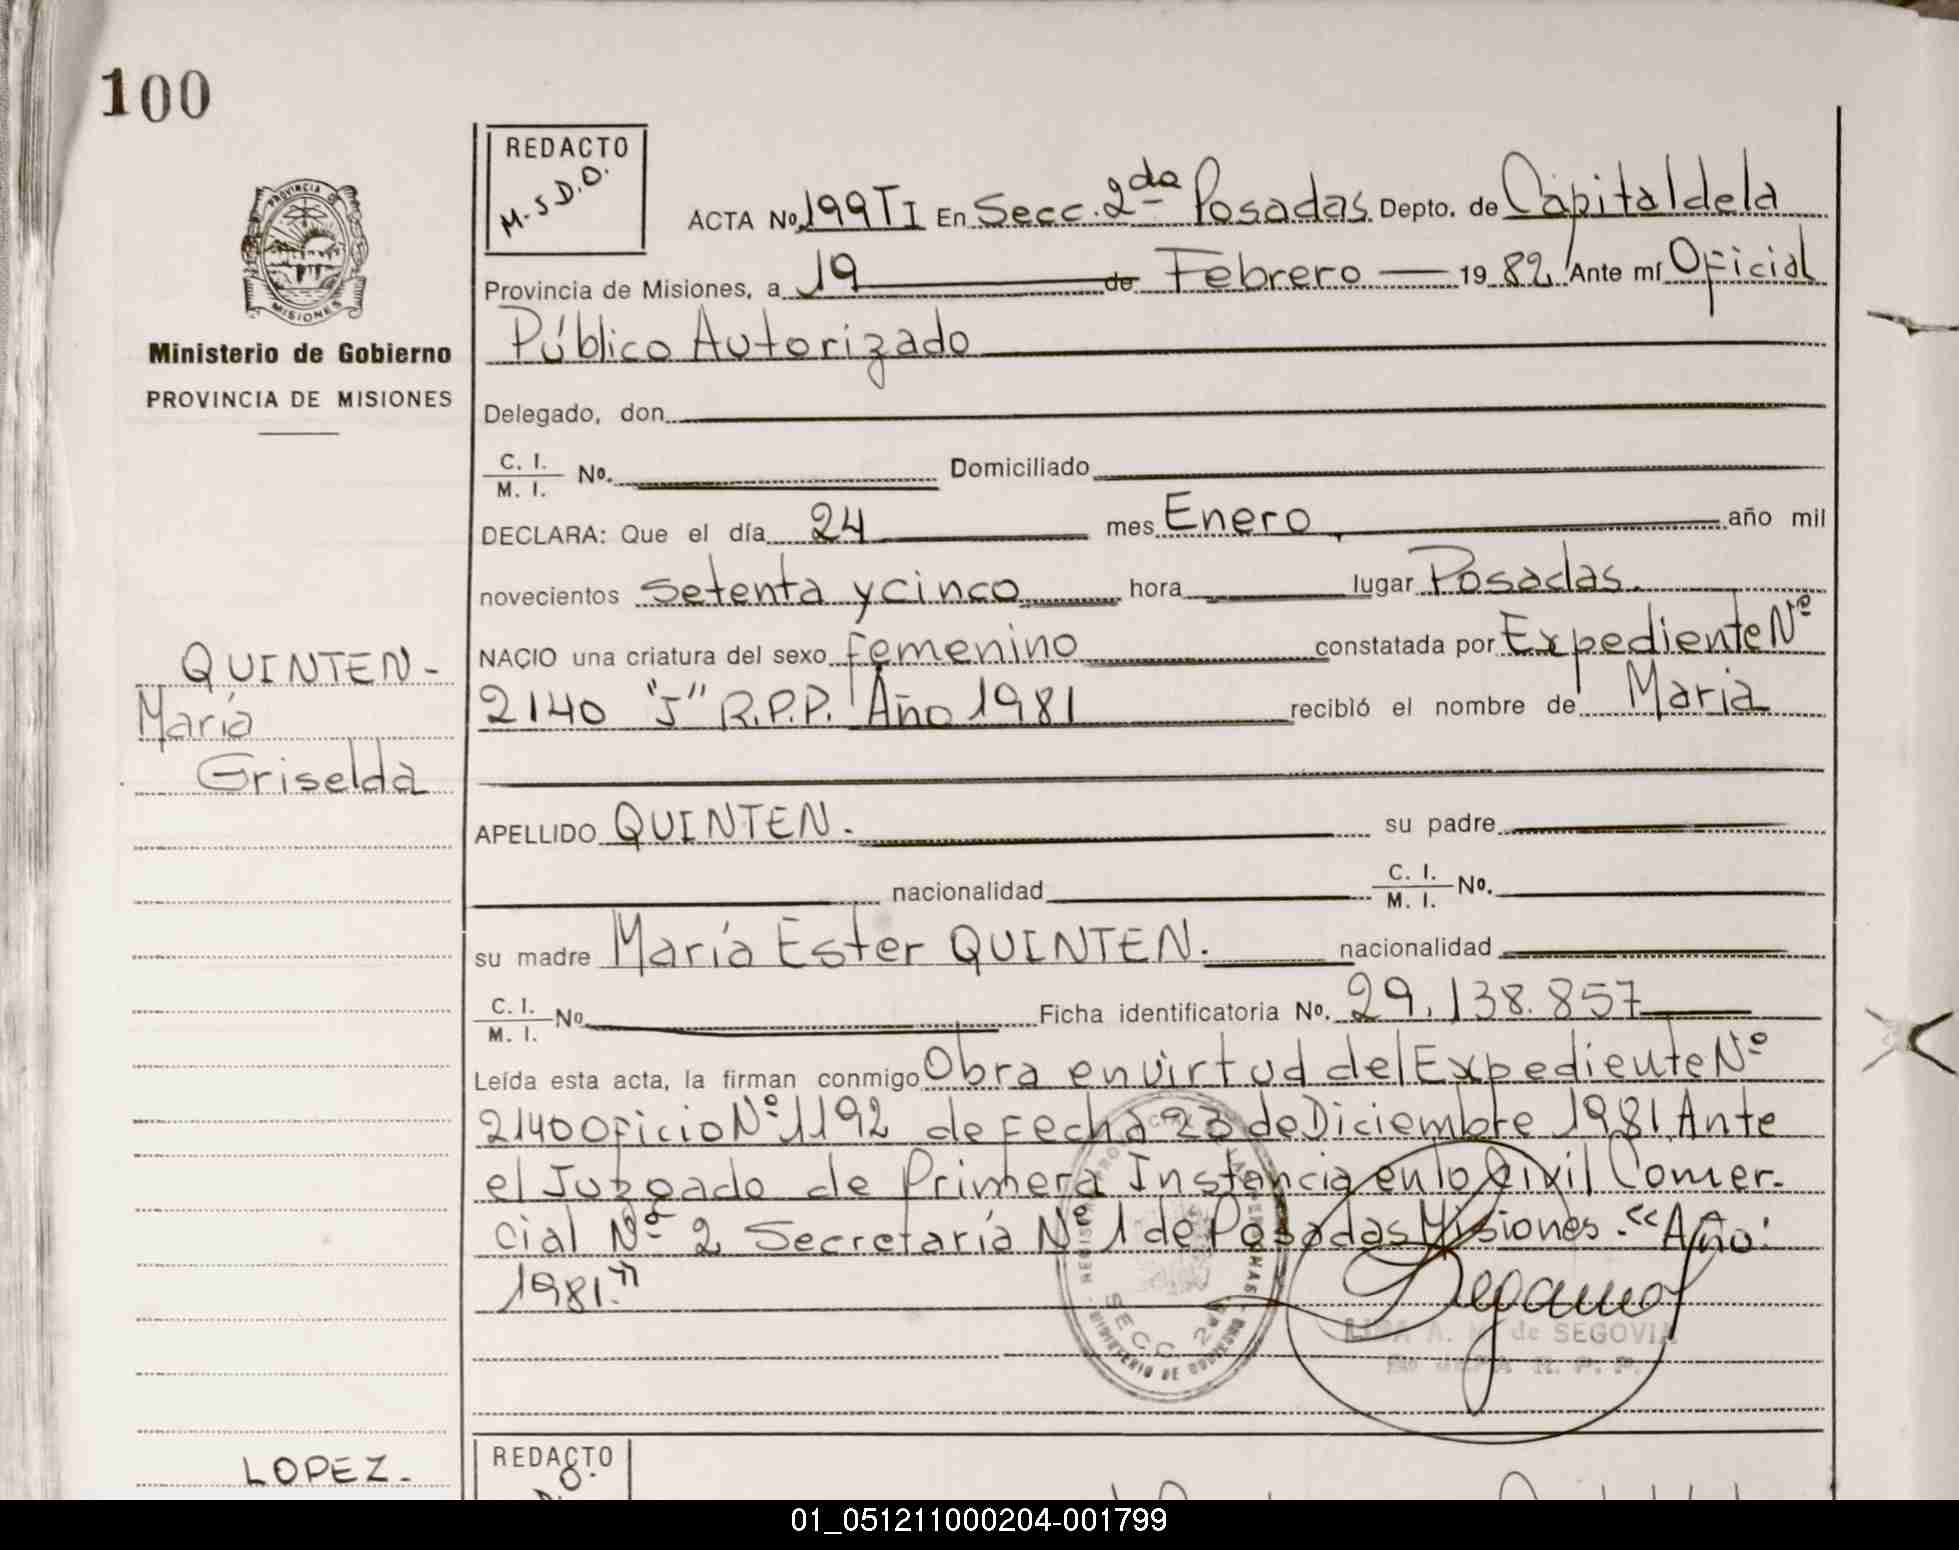 100
REDACTO
M.S.D.O.
ACTA No. 199 TI En Secc. 2da Posadas. Depto. de Capital de la
PROVINCIA DE MISIONES
Provincia de Misiones, a 19 de Febrero 1982 Ante mí Oficial
Ministerio de Gobierno
Público Autorizado
PROVINCIA DE MISIONES
Delegado, don
C. I.
M. I. No. Domiciliado
DECLARA: Que el día 24 mes Enero año mil
novecientos setenta y cinco hora lugar Posadas.
NACIO una criatura del sexo femenino constatada por Expediente Nº
QUINTEN-
2140 "J" R.P.P. Año 1981 recibió el nombre de María
María
Griselda
APELLIDO QUINTEN. su padre
nacionalidad C. I.
M. I. No.
su madre María Ester QUINTEN. nacionalidad
C. I.
M. I. No Ficha identificatoria No. 29.138.857
Leída esta acta, la firman conmigo Obra en virtud del Expediente Nº
2140 Oficio Nº 1192 de fecha 23 de Diciembre 1981. Ante
el Juzgado de Primera Instancia en lo Civil Comer-
cial Nº 2 Secretaría Nº 1 de Posadas Misiones. "Año:
1981."
SECC. 2da
MINISTERIO DE GOBIERNO
de SEGOVIA
R. P. P.
REDACTO
LOPEZ-
01_051211000204-001799